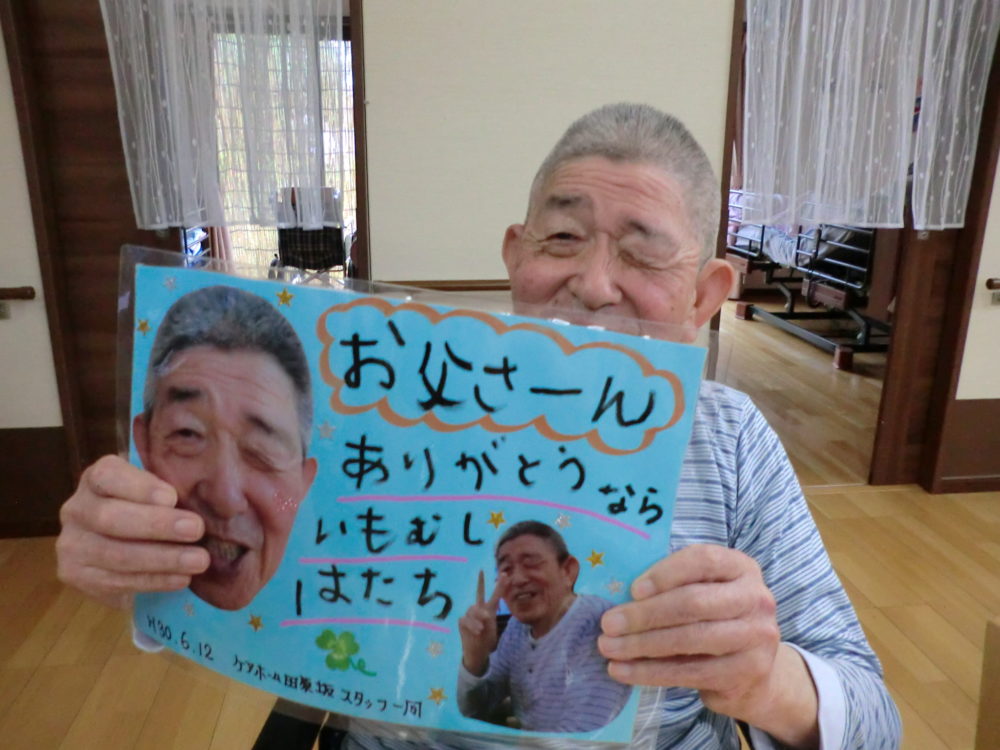 お父さーん
ありがとうなら
いもむし
はたち
H30.6.12 ケアホーム田原坂スタッフ一同